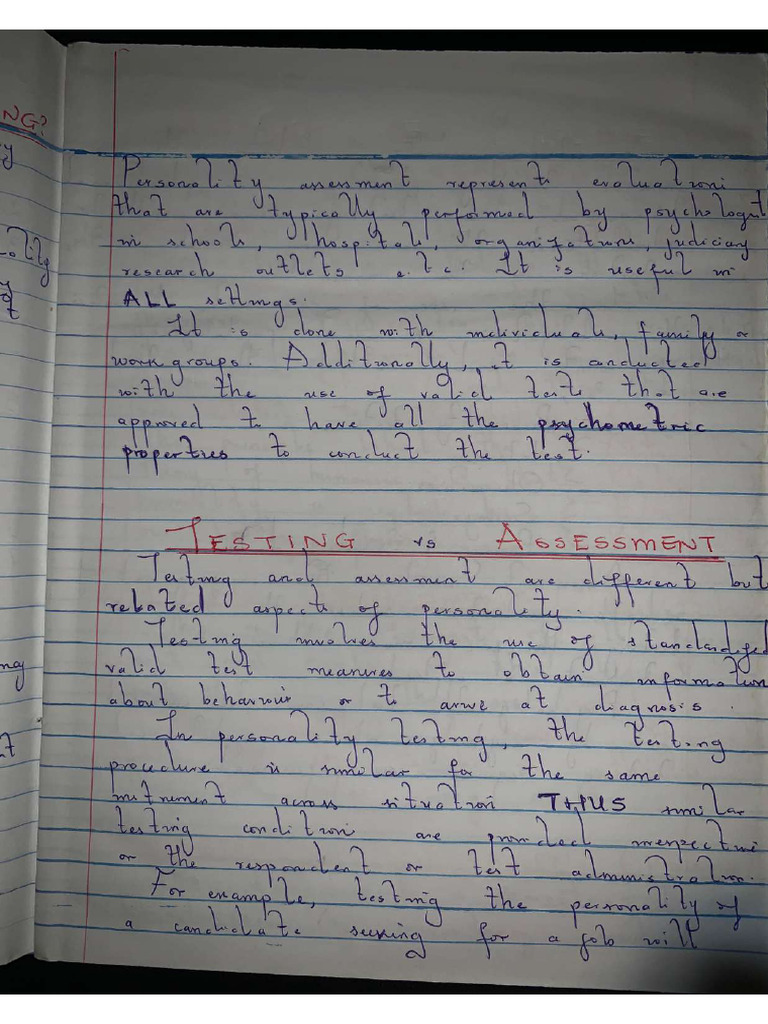 NG?
Personality assessment represents evaluations
that are typically performed by psychologist
in schools, hospitals, organizations, judiciary
research outlets e.t.c. It is useful in
ALL settings.
It is done with individuals, family or
work groups. Additionally, it is conducted
with the use of valid tests that are
approved to have all the psychometric
properties to conduct the test.
TESTING vs ASSESSMENT
Testing and assessment are different but
related aspects of personality.
Testing involves the use of standardized
valid test measures to obtain information
about behaviour or to arrive at diagnosis.
In personality testing, the testing
procedure is similar for the same
instrument across situation THUS similar
testing condition are provided irrespective
or the respondent or test administration.
For example, testing the personality of
a candidate seeking for a job will